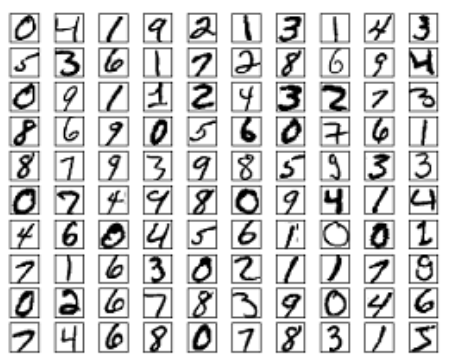 0 4 1 9 2 1 3 1 4 3
5 3 6 1 7 2 8 6 9 4
0 9 1 1 2 4 3 2 7 3
8 6 9 0 5 6 0 7 6 1
8 7 9 3 9 8 5 9 3 3
0 7 4 9 8 0 9 4 1 4
4 6 0 4 5 6 1 0 0 1
7 1 6 3 0 2 1 1 7 9
0 2 6 7 8 3 9 0 4 6
7 4 6 8 0 7 8 3 1 5